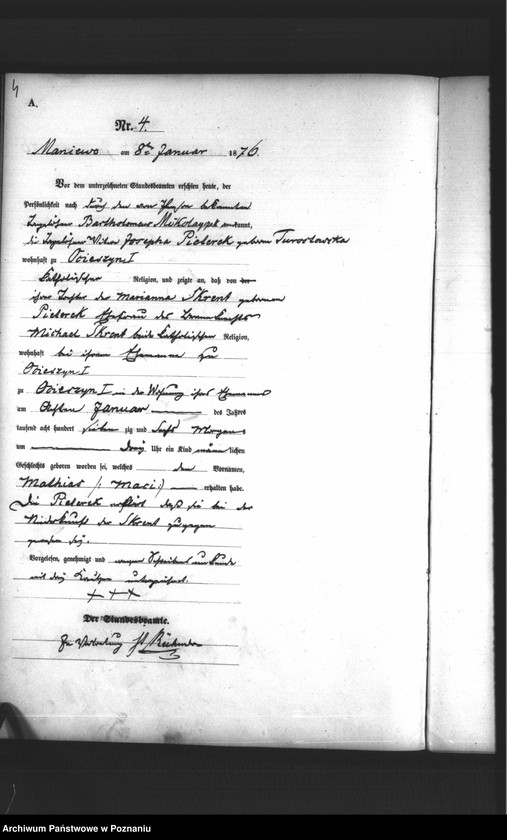 4
A.
Nr. 4.
Maniewo am 8ten Januar 1876.
Vor dem unterzeichneten Standesbeamten erschien heute, der
Persönlichkeit nach durch den von Person bekannten
Bartholomaeus Mikolayczak anerkannt,
die Josepha Pieterek geborene Turostowska
wohnhaft zu Obieszyn I
katholischer Religion, und zeigte an, daß von der
ihrer Tochter der Marianna Skrent geborenen
Pieterek Ehefrau des
Michael Skrent beide katholischer Religion,
wohnhaft bei ihrem Ehemanne zu
Obieszyn I
zu Obieszyn I in der Wohnung ihres Ehemannes
am Januar des Jahres
tausend acht hundert sieben zig und sechs Morgens
um drey Uhr ein Kind männlichen
Geschlechts geboren worden sei, welches den Vornamen,
Mathias /: Maci :/ erhalten habe.
Die Pieterek erklärt daß sie bei der
Niederkunft der Skrent zugegen
gewesen sey.
Vorgelesen, genehmigt und wegen
mit drey Kreutzen unterzeichnet.
+ + +
Der Standesbeamte.
In Vertretung
Archiwum Państwowe w Poznaniu